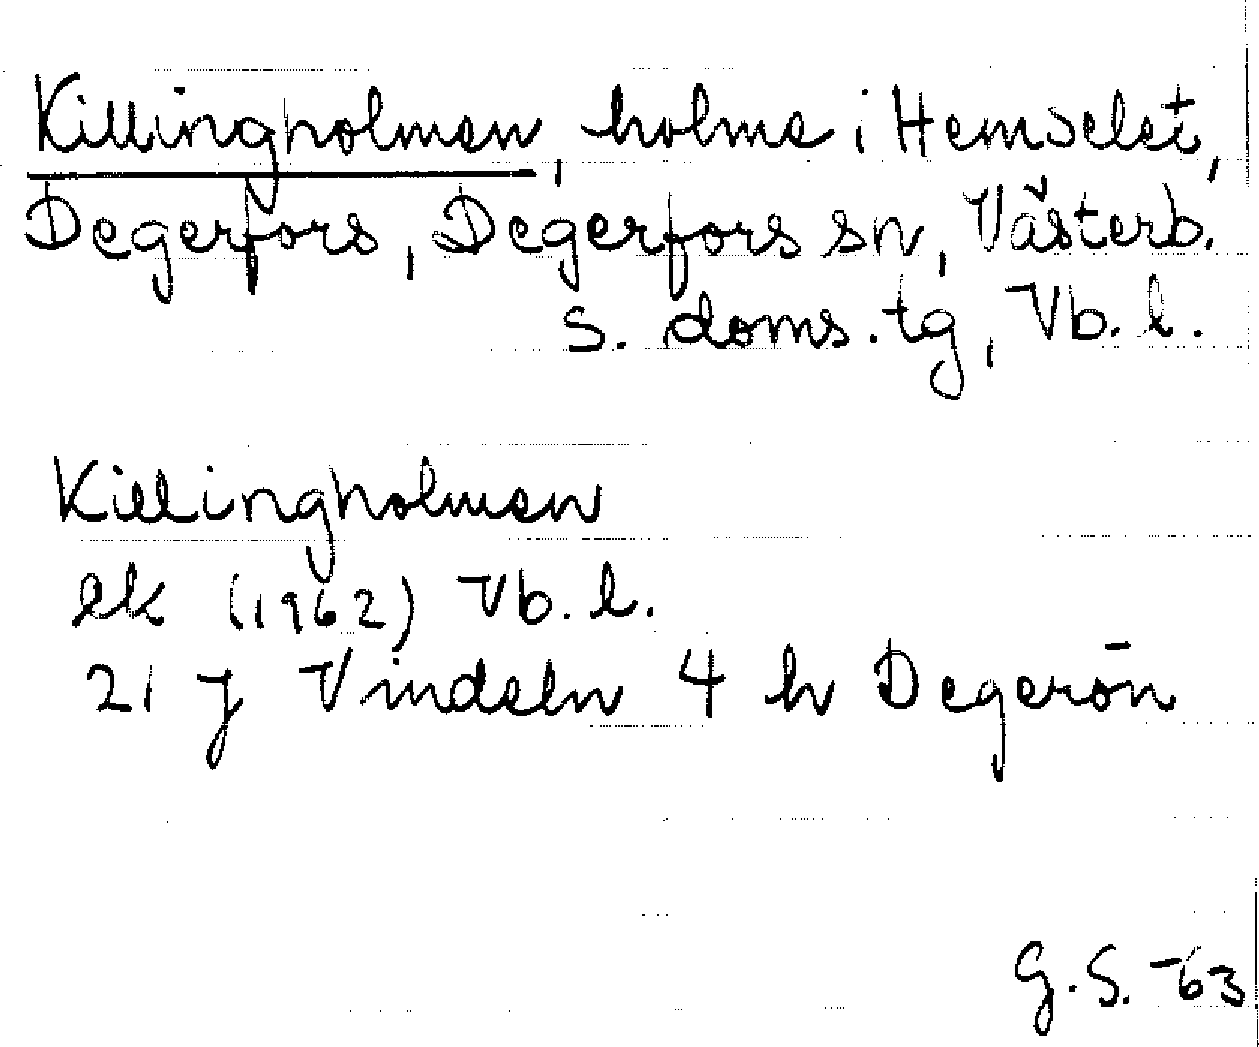 Killingholmen, holme i Hemselet,
Degerfors, Degerfors sn, Västerb.
s. doms. tg, Vb. l.
Killingholmen
ek (1962) Vb. l.
21 J Vindeln 4 h Degerön
G.S. -63